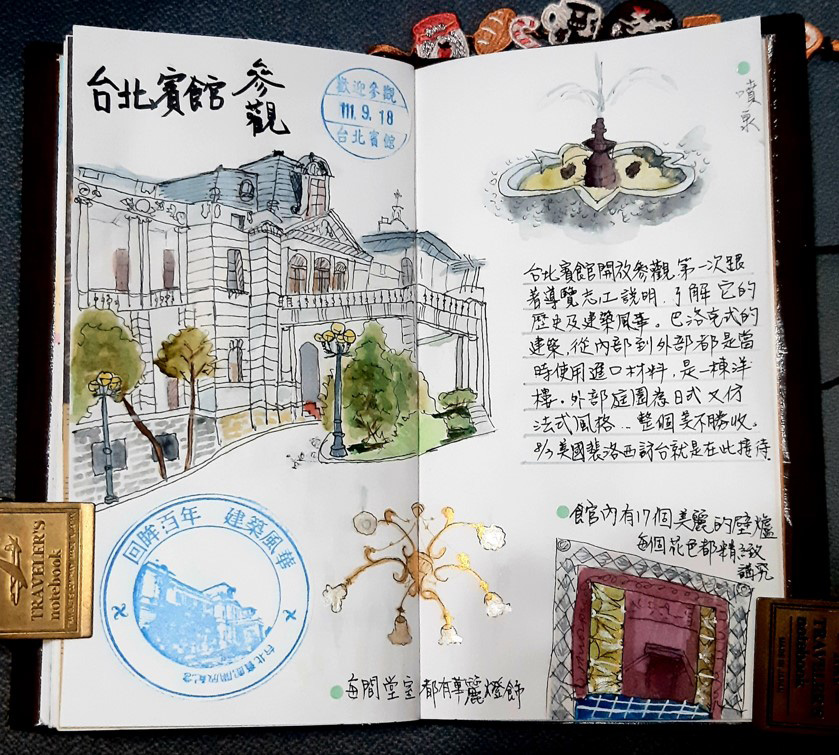 台北賓館參觀
歡迎參觀
111.9.18
台北賓館
噴泉
台北賓館開放參觀.第一次跟
著導覽志工說明.了解它的
歷史及建築風華。巴洛克式的
建築,從內部到外部都是當
時使用進口材料,是一棟洋
樓.外部庭園為日式又仿
法式風格...整個美不勝收。
8/3美國裴洛西訪台就是在此接待.
館內有17個美麗的壁爐
每個花色都精緻
講究
回眸百年 建築風華
台北賓館開放紀念
每間堂室都有華麗燈飾
TRAVELER'S
notebook
TRAVELER'S
notebook